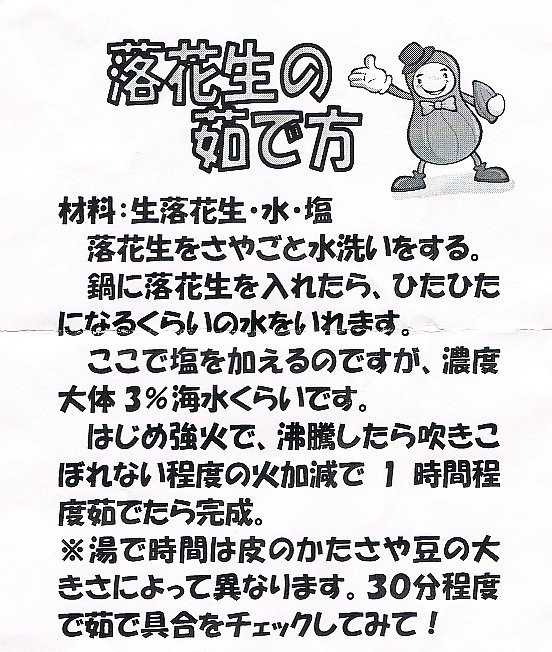 落花生の
茹で方
材料：生落花生・水・塩
落花生をさやごと水洗いをする。
鍋に落花生を入れたら、ひたひた
になるくらいの水をいれます。
ここで塩を加えるのですが、濃度
大体3％海水くらいです。
はじめ強火で、沸騰したら吹きこ
ぼれない程度の火加減で1時間程
度茹でたら完成。
※湯で時間は皮のかたさや豆の大
きさによって異なります。30分程度
で茹で具合をチェックしてみて！